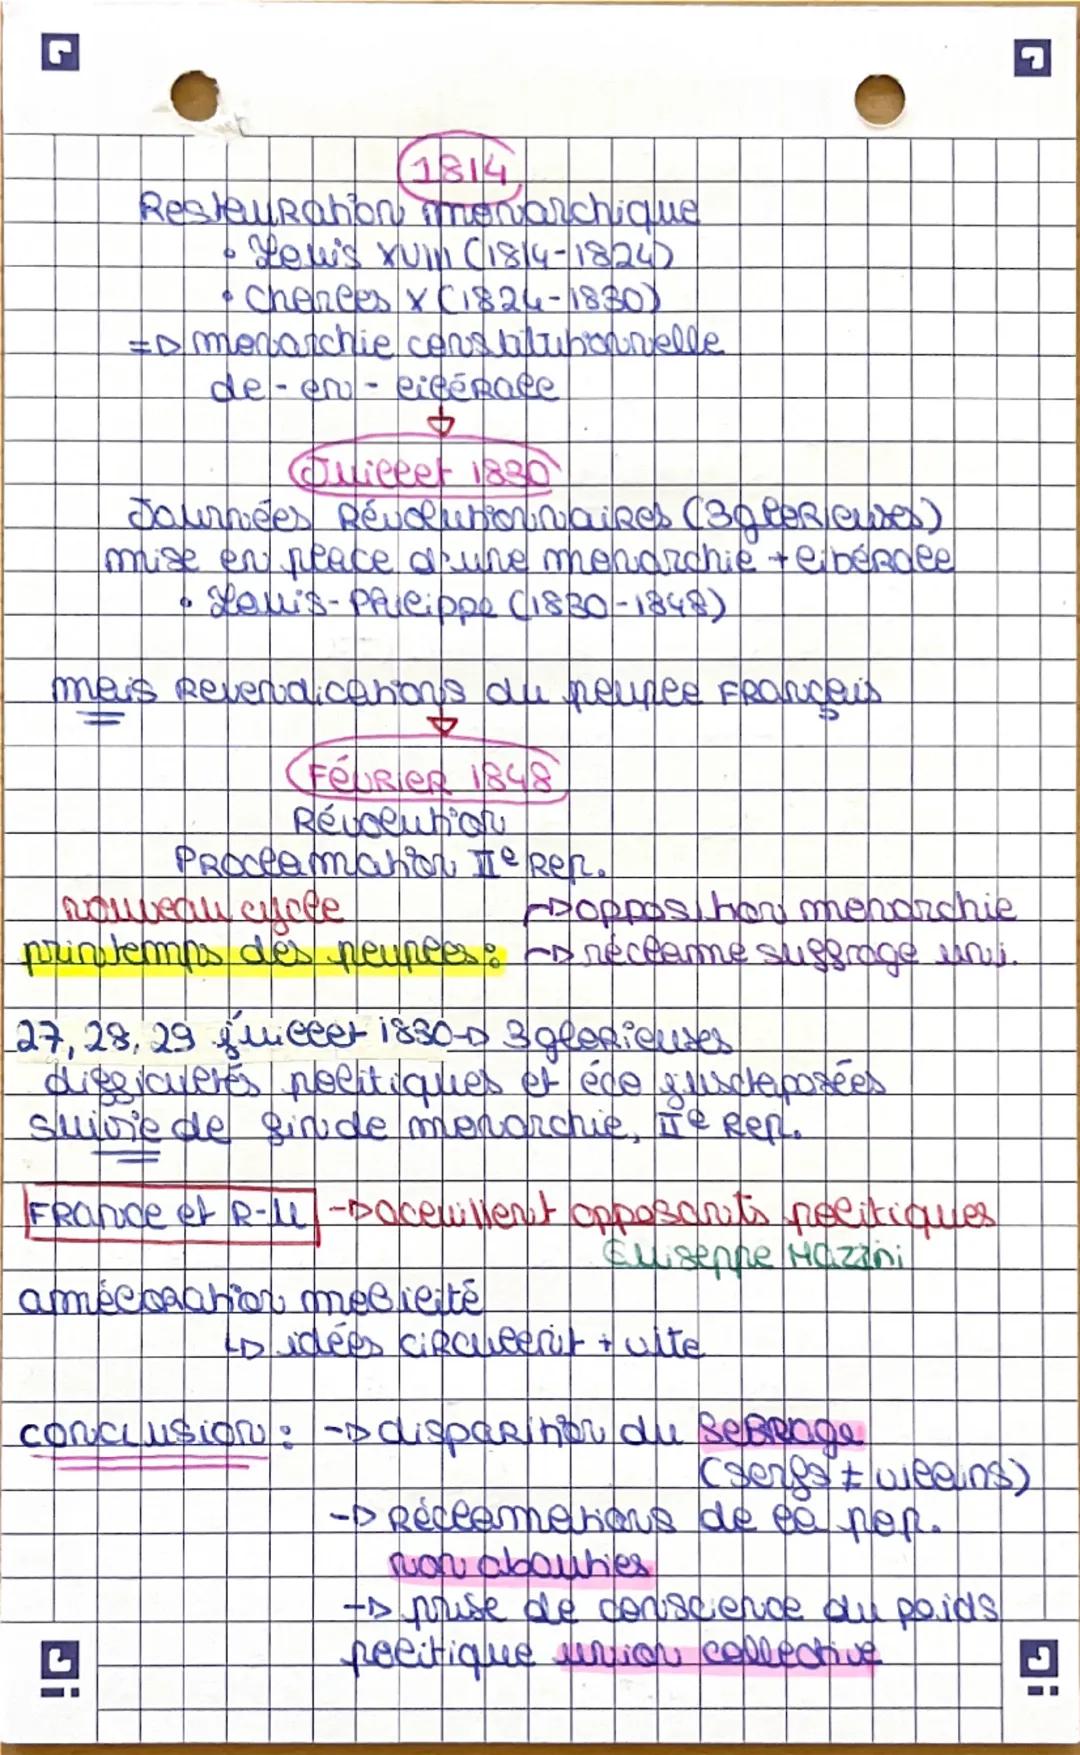 1814
Restauration monarchique
• Louis XVIII (1814-1824)
• Charles X (1824-1830)
=> monarchie constitutionnelle
de - en - libérale
Juillet 1830
Journées Révolutionnaires (3 glorieuses)
mise en place d'une monarchie + libérale
• Louis-Philippe (1830-1848)
mais Revendications du peuple Français
Février 1848
Révolution
Proclamation IIe Rep.
nouveau cycle
→ opposition monarchie
printemps des peuples : → réclame suffrage uni.
27, 28, 29 juillet 1830 → 3 glorieuses
difficultés politiques et éco juxtaposées
suivie de fin de monarchie, IIe Rep.
France et R-U → aceuillent opposants politiques
Guiseppe Mazzini
amélioration mobilité
↳ idées circulent + vite
conclusion : → disparition du servage
(serfs ≠ vilains)
→ Réclamations de la pop.
non abouties
→ prise de conscience du poids
politique union collective